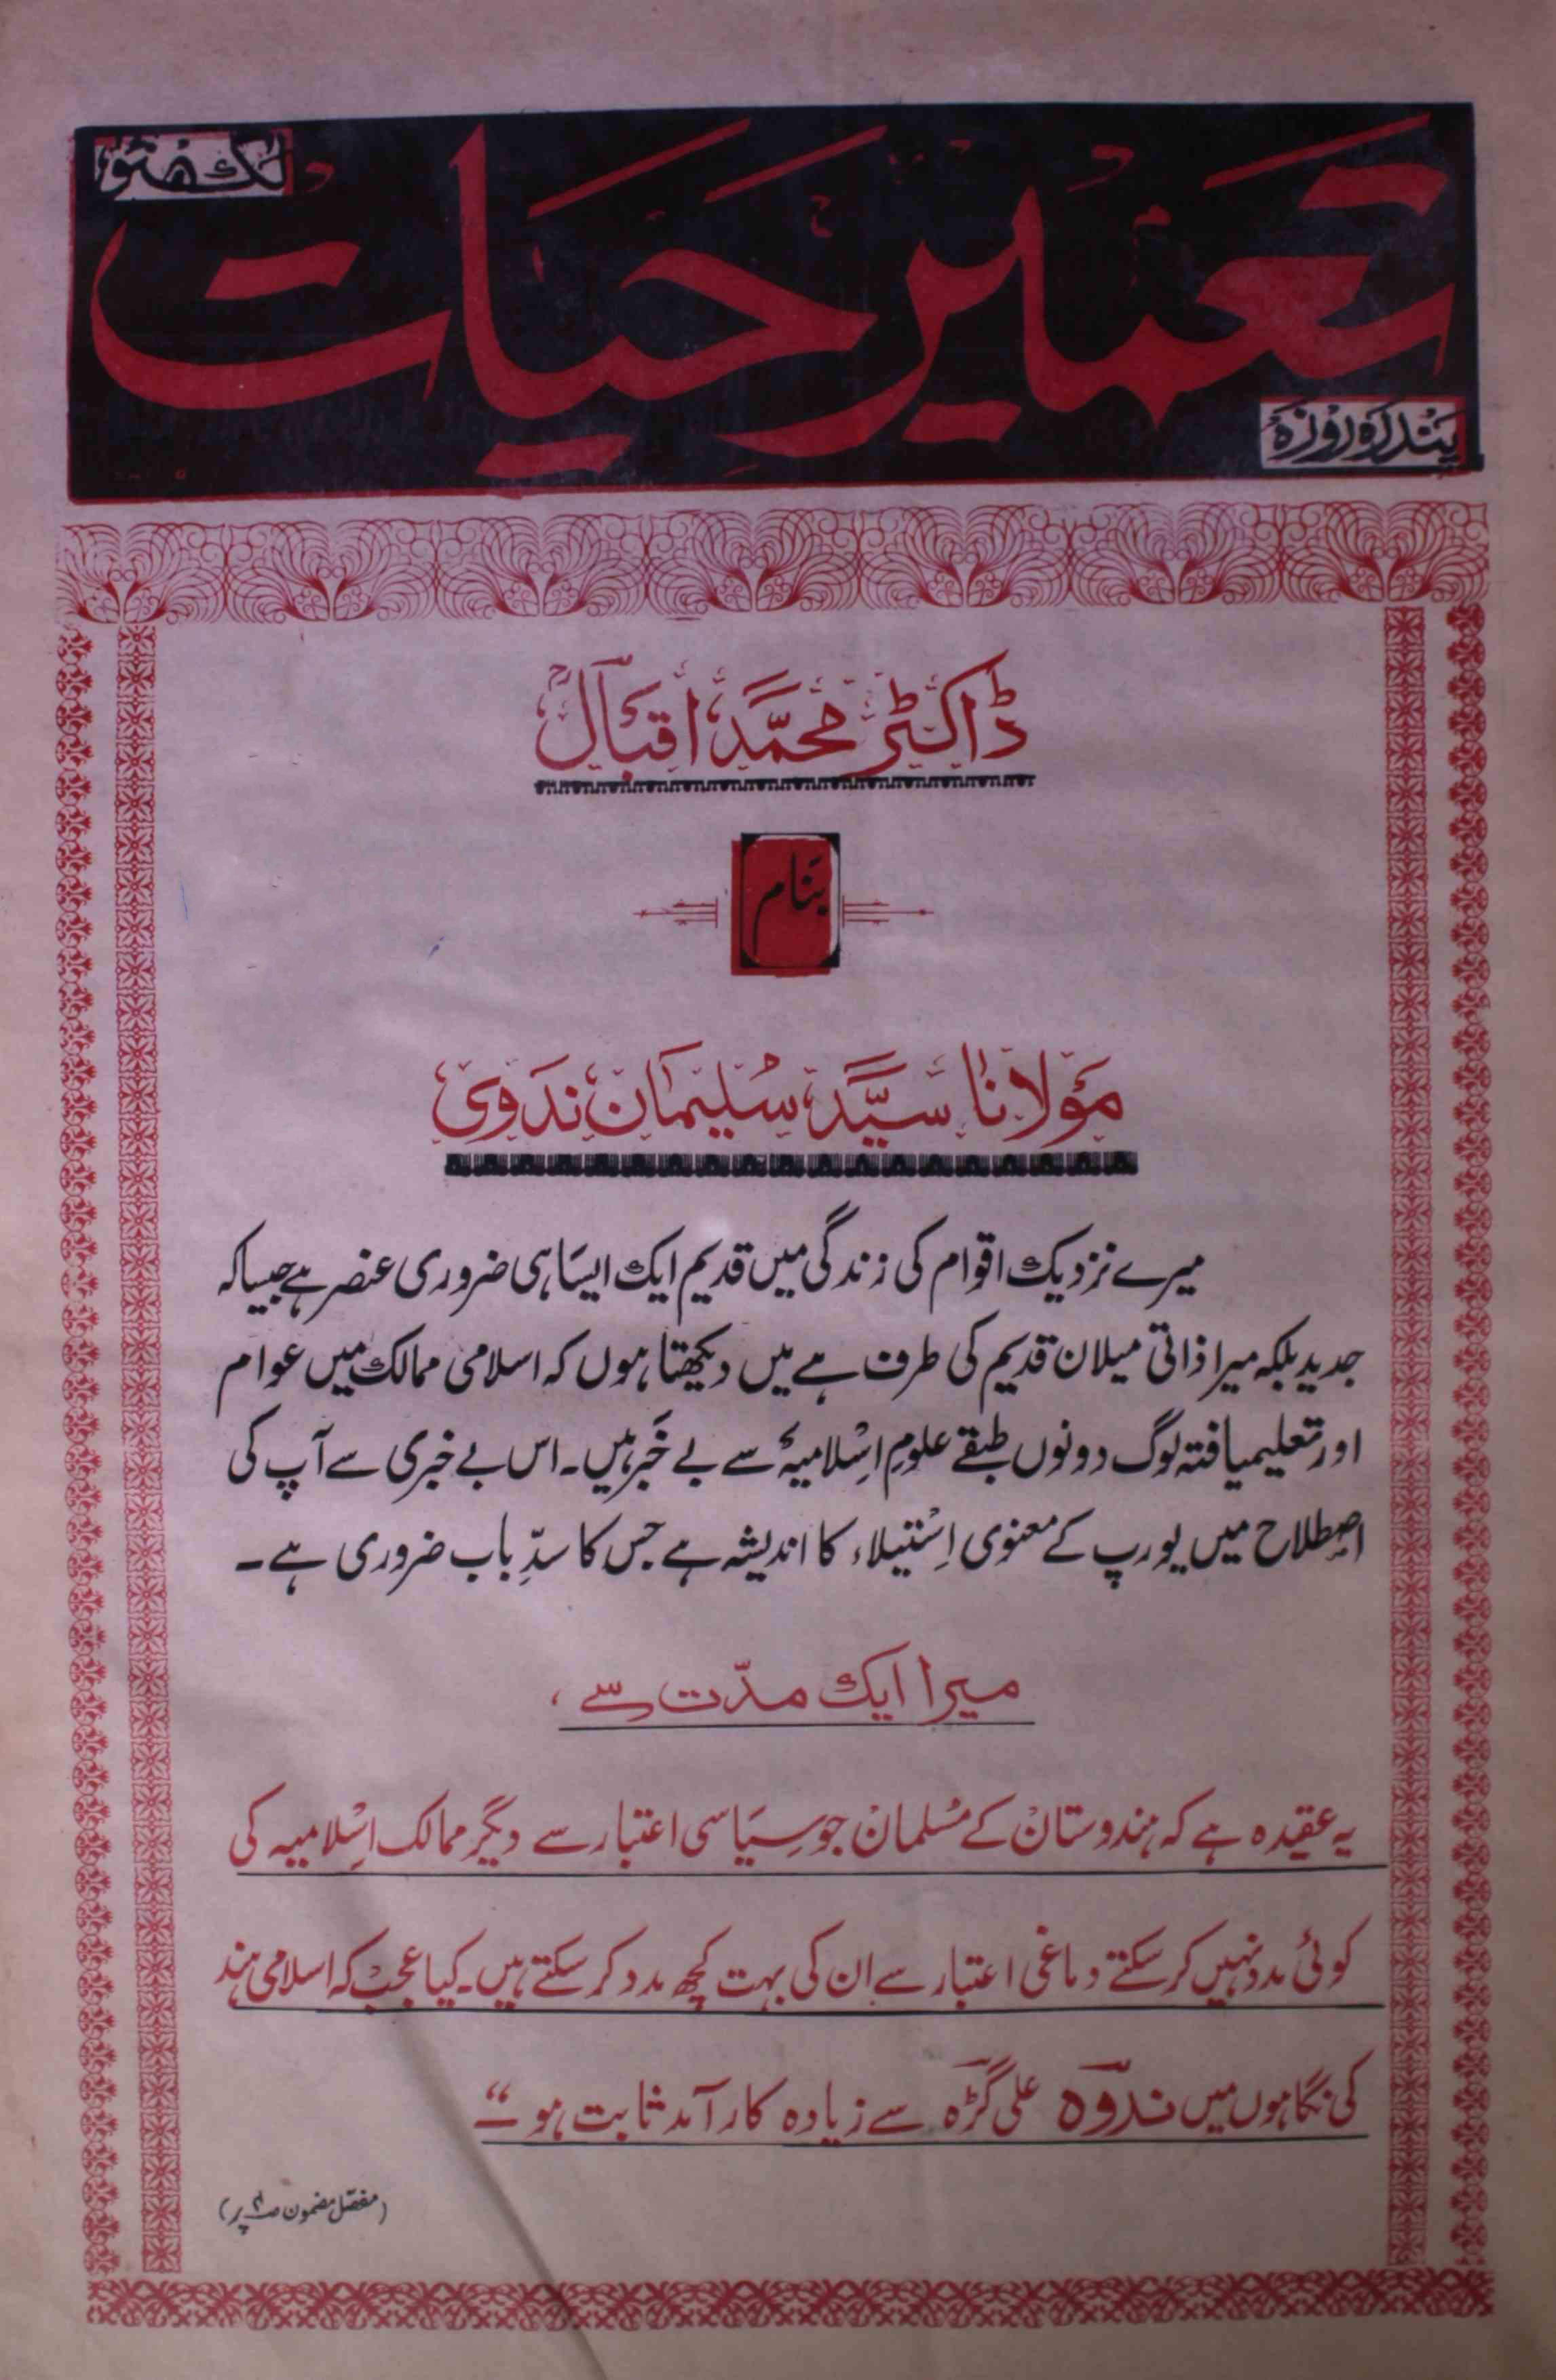 لکھنؤ
تعمیر حیات
پندرہ روزہ
ڈاکٹر محمد اقبالؒ
بنام
مولانا سید سلیمان ندوی
میرے نزدیک اقوام کی زندگی میں قدیم ایک ایسا ہی ضروری عنصر ہے جیسا کہ
جدید بلکہ میرا ذاتی میلان قدیم کی طرف ہے میں دیکھتا ہوں کہ اسلامی ممالک میں عوام
اور تعلیم یافتہ لوگ دونوں طبقے علومِ اسلامیہ سے بے خبر ہیں۔ اس بے خبری سے آپ کی
اصطلاح میں یورپ کے معنوی اِستیلاء کا اندیشہ ہے جس کا سدِّ باب ضروری ہے۔
میرا ایک مدّت سے،
یہ عقیدہ ہے کہ ہندوستان کے مسلمان جو سیاسی اعتبار سے دیگر ممالک اسلامیہ کی
کوئی مدد نہیں کر سکتے دماغی اعتبار سے ان کی بہت کچھ مدد کر سکتے ہیں۔ کیا عجب کہ اسلامی ہند
کی نگاہوں میں ندوہ علی گڑھ سے زیادہ کار آمد ثابت ہو “
(مفصل مضمون ص پر)